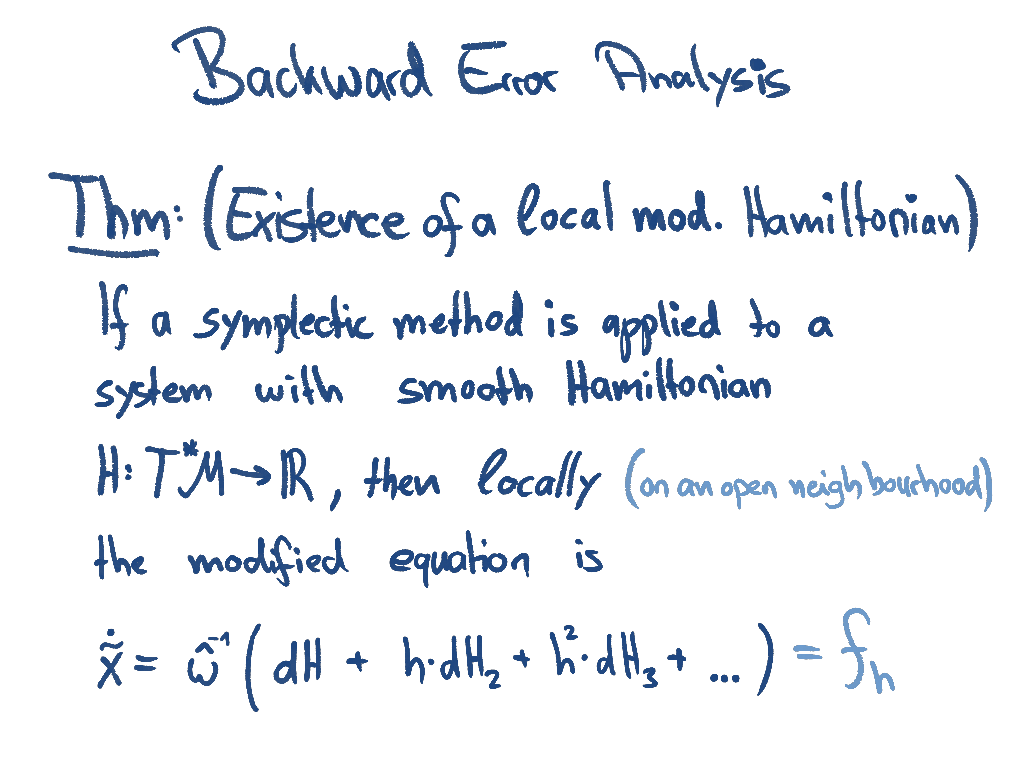 Backward Error Analysis
Thm: (Existence of a local mod. Hamiltonian)
If a symplectic method is applied to a
system with smooth Hamiltonian
H: T*M → ℝ, then locally (on an open neighbourhood)
the modified equation is
ẋ̃ = ω̂⁻¹ ( dH + h·dH₂ + h²·dH₃ + ... ) = f_h